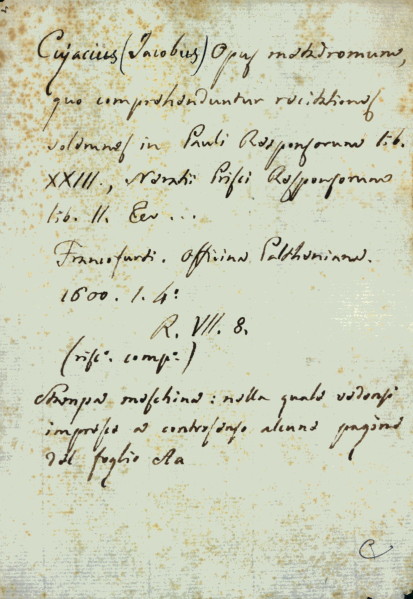 Cujacius (Jacobus) Opus metadromum,
quo comprehenduntur recitationes
solemnes in Pauli Responsorum lib.
XXIII., Neratii Prisci Responsorum
lib. II. Ecc ...
Francofurti. Officina Paltheniana.
1600. 1. 4:
R. VII. 8.
(risc. comp.)
Stampa meschina: nella quale vedonsi
impresse a controsenso alcune pagine
del foglio Aa